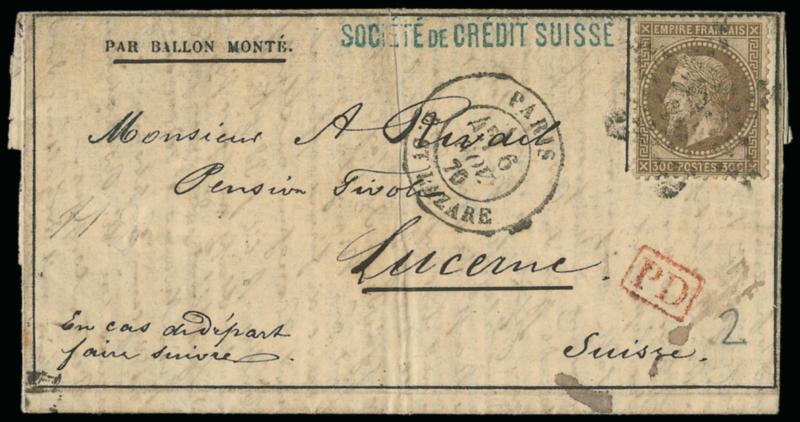 PAR BALLON MONTÉ.
SOCIÉTÉ DE CRÉDIT SUISSE
EMPIRE FRANÇAIS
30C POSTES 30C
PARIS
6
NOV.
70
R. ST LAZARE
Monsieur A Rivail
Pension Tivoli
Lucerne.
PD
En cas de départ
faire suivre.
Suisse.
2